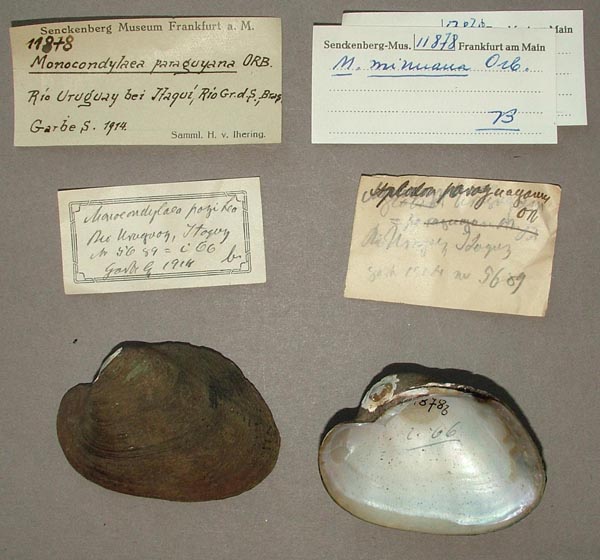 Senckenberg Museum Frankfurt a. M.
11878
Monocondylaea paraguyana ORB.
Rio Uruguay bei Itaqui, Rio Gr.d.S., Bras.
Garbe S. 1914.
Samml. H. v. Ihering.
Main
Senckenberg-Mus. 11878 Frankfurt am Main
M. minuana Orb.
B
Monocondylaea
Rio Uruguay, Itaquy
No 5689 = i 66
Garbe 1914
Aplodon
Rio Uruguay Itaquy
5689
11878b
i. 66